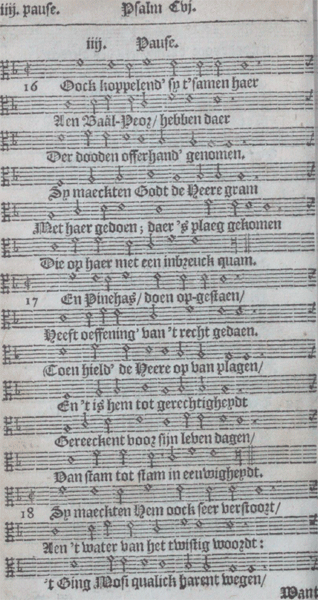 iiij. pause. Psalm Cvj.
iiij. Pause.
16 Oock koppelend' sy t'samen haer
Aen Baäl-Peor/ hebben daer
Der dooden offerhand' genomen.
Sy maeckten Godt de Heere gram
Met haer gedoen; daer 's plaeg gekomen
Die op haer met een inbreuck quam.
17 En Pinehas/ doen op-gestaen/
Heeft oeffening' van 't recht gedaen.
(Toen hield' de Heere op van plagen/
En 't is hem tot gerechtigheydt
Gereeckent voor sijn leven dagen/
Van stam tot stam in eeuwigheydt.
18 Sy maeckten Hem oock seer verstoort/
Aen 't water van het twistig woordt:
't Ging Mosi qualick harent wegen/
Want